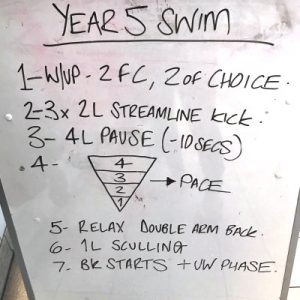 YEAR 5 SWIM
1-W/UP-2FC, 2 OF CHOICE.
2-3x 2L STREAMLINE KICK.
3- 4L PAUSE (-10SECS)
4-
4
3
2
1
→ PACE
5- RELAX DOUBLE ARM BACK.
6- 1L SCULLING
7- BK STARTS + UW PHASE.